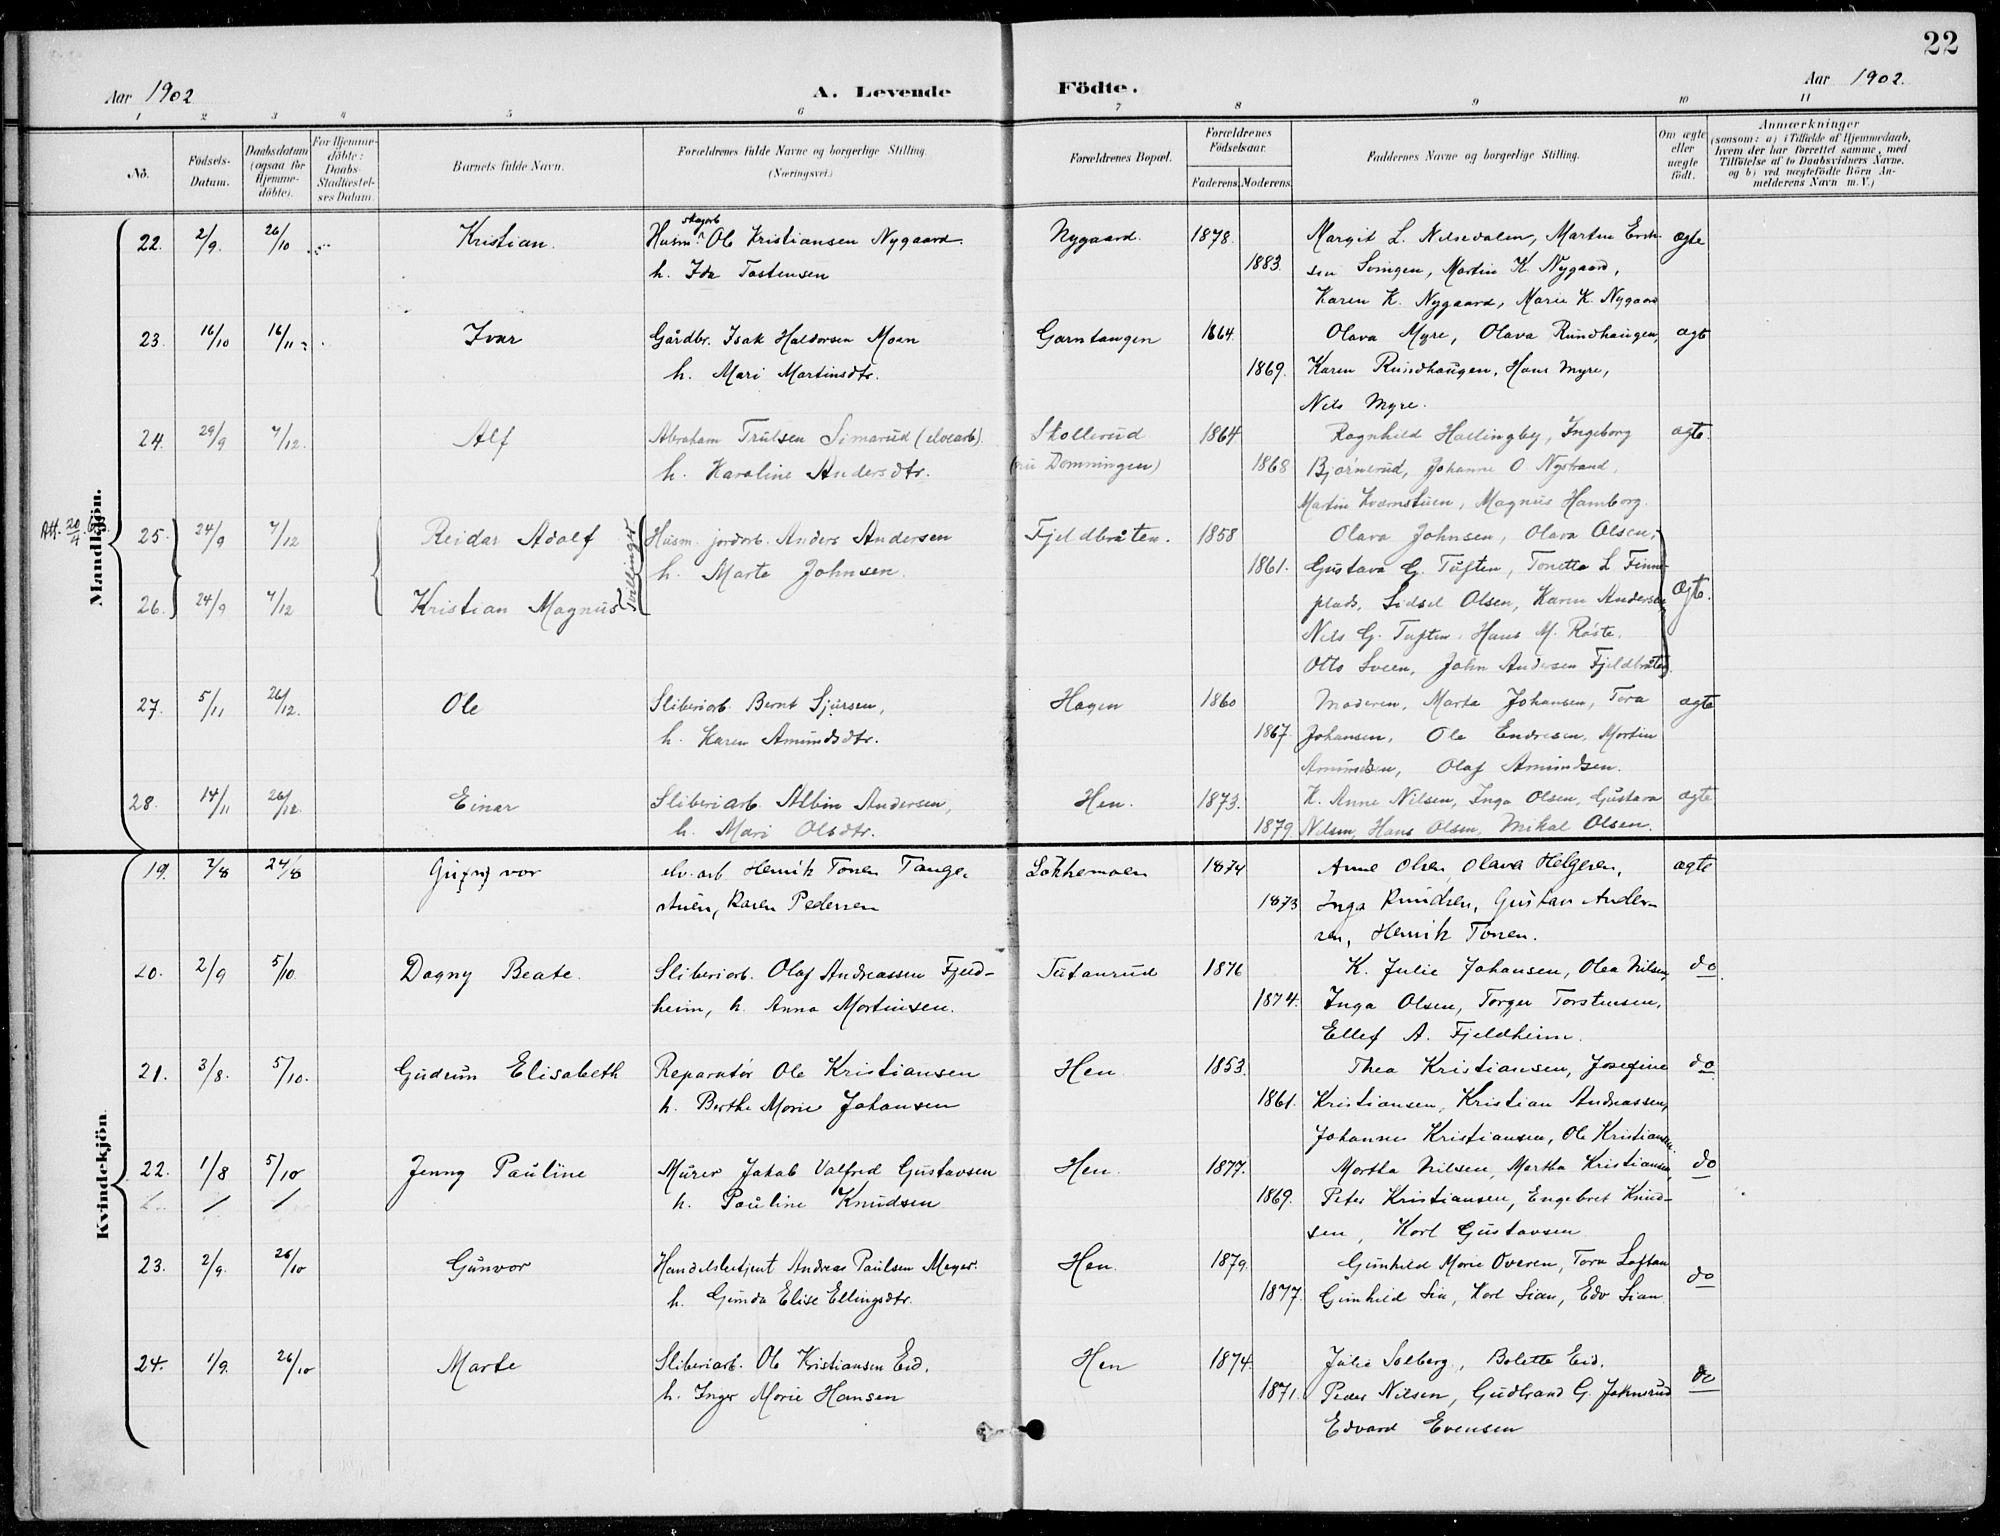 22
Aar 1902
A. Levende
Födte.
Aar 1902.
1 2 3 4 5 6 7 8 9 10 11
No.
Födsels-Datum.
Daabsdatum (ogsaa for Hjemme-döbte).
For Hjemme-döbte: Daabs-Stadfæstel-ses Datum.
Barnets fulde Navn.
Forældrenes fulde Navne og borgerlige Stilling. (Næringsvei.)
Forældrenes Bopæl.
Forældrenes Födselsaar.
Faderens. Moderens.
Faddernes Navne og borgerlige Stilling.
Om ægte eller uægte födt.
Anmærkninger
(saasom: a) i Tilfælde af Hjemmedaab, hvem der har forrettet samme, med Tilföielse af to Daabsvidners Navne, og b) ved uægtefödte Börn Anmelderens Navn m. V.)
Mandkjön.
22. 2/9 26/10 Kristian. Husm. skogarb Ole Kristiansen Nygaard. Nygaard. 1878. Margit L. Nilsedalen, Martin Erik- ægte
h. Ida Tostensen 1883. sen Svingen, Martin K. Nygaard,
Karen K. Nygaard, Marie K. Nygaard
23. 16/10 16/11 Ivar Gårdbr. Isak Haldorsen Moen Garntangen 1864. Olava Myre, Olava Rundhaugen, ægte
h. Mari Martinsdtr. 1869. Karen Rundhaugen, Hans Myre,
Nils Myre.
24. 29/9 7/12 Alf Abraham Trulsen Simarud (elvearb) Skollerud 1864 Ragnhild Hallingby, Ingeborg ægte.
h. Karoline Andersdtr. Domningen) 1868 Bjørnerud, Johanne O. Nystrand,
Martin Kværnstuen, Magnus Hamborg.
Att. 20/4
25. 24/9 7/12 Reidar Adolf Tvillinger Husm. jordarb. Anders Andersen Fjeldbråten. 1858 Olava Johnsen, Olava Olsen,
h. Marte Johnsen. 1861. Gustava G. Tuften, Tonetta L. Finne-
26. 24/9 7/12 Kristian Magnus plads, Sidsel Olsen, Karen Andersen ægte.
Nils G. Tuften, Hans M. Røste,
Otto Sveen, John Andersen Fjeldbråten.
27. 5/11 26/12. Ole Sliberiarb. Bernt Sjursen, Hagen 1860 Moderen, Marta Johansen, Tora ægte
h. Karen Amundsdtr. 1867. Johansen, Ole Endresen, Martin
Amundsen, Olaf Amundsen.
28. 14/11 26/12. Einar Sliberiarb. Albin Andersen, Hen. 1873. K. Anne Nilsen, Inga Olsen, Gustava ægte
h. Mari Olsdtr. 1879 Nilsen, Hans Olsen, Mikal Olsen.
Kvindekjön
19. 2/8 24/8 Gunvor elv. arb Henrik Tonen Tange- Løkkemoen 1874 Anne Olsen, Olava Helgesen, ægte
stuen, Karen Pedersen 1873 Inga Knudsen, Gustav Ander-
sen, Henrik Tonen.
20. 2/9 5/10. Dagny Beate. Sliberiarb. Olaf Andreassen Fjeld- Tutanrud 1876 K. Julie Johansen, Olea Nilsen, do
heim, h. Anna Mortinsen. 1874. Inga Olsen, Torger Torstensen,
Ellef A. Fjeldheim.
21. 3/8. 5/10. Gudrun Elisabeth Reparatør Ole Kristiansen Hen. 1853. Thea Kristiansen, Josefine do
h. Berthe Marie Johansen 1861. Kristiansen, Kristian Andreassen,
Johannes Kristiansen, Ole Kristiansen
22. 1/8 5/10 Jenny Pauline Murer Jakob Valfred Gustavsen Hen. 1877. Martha Nilsen, Martha Kristiansen, do
h. Pauline Knudsen 1869. Peter Kristiansen, Engebret Knud-
sen, Karl Gustavsen
23. 2/9. 26/10 Gunvor Handelsbetjent Andreas Paulsen Meyer. Hen. 1879. Gunhild Marie Overen, Tora Loftan do
h. Gunda Elise Ellingsdtr. 1877. Gunhild Lia, Karl Lian, Edv Lian
24. 1/9. 26/10 Marte Sliberiarb. Ole Kristiansen Eid. Hen 1874. Julie Solberg, Bolette Eid. do
h. Inger Marie Hansen 1871. Peder Nilsen, Gudbrand G. Johnsrud
Edvard Evensen